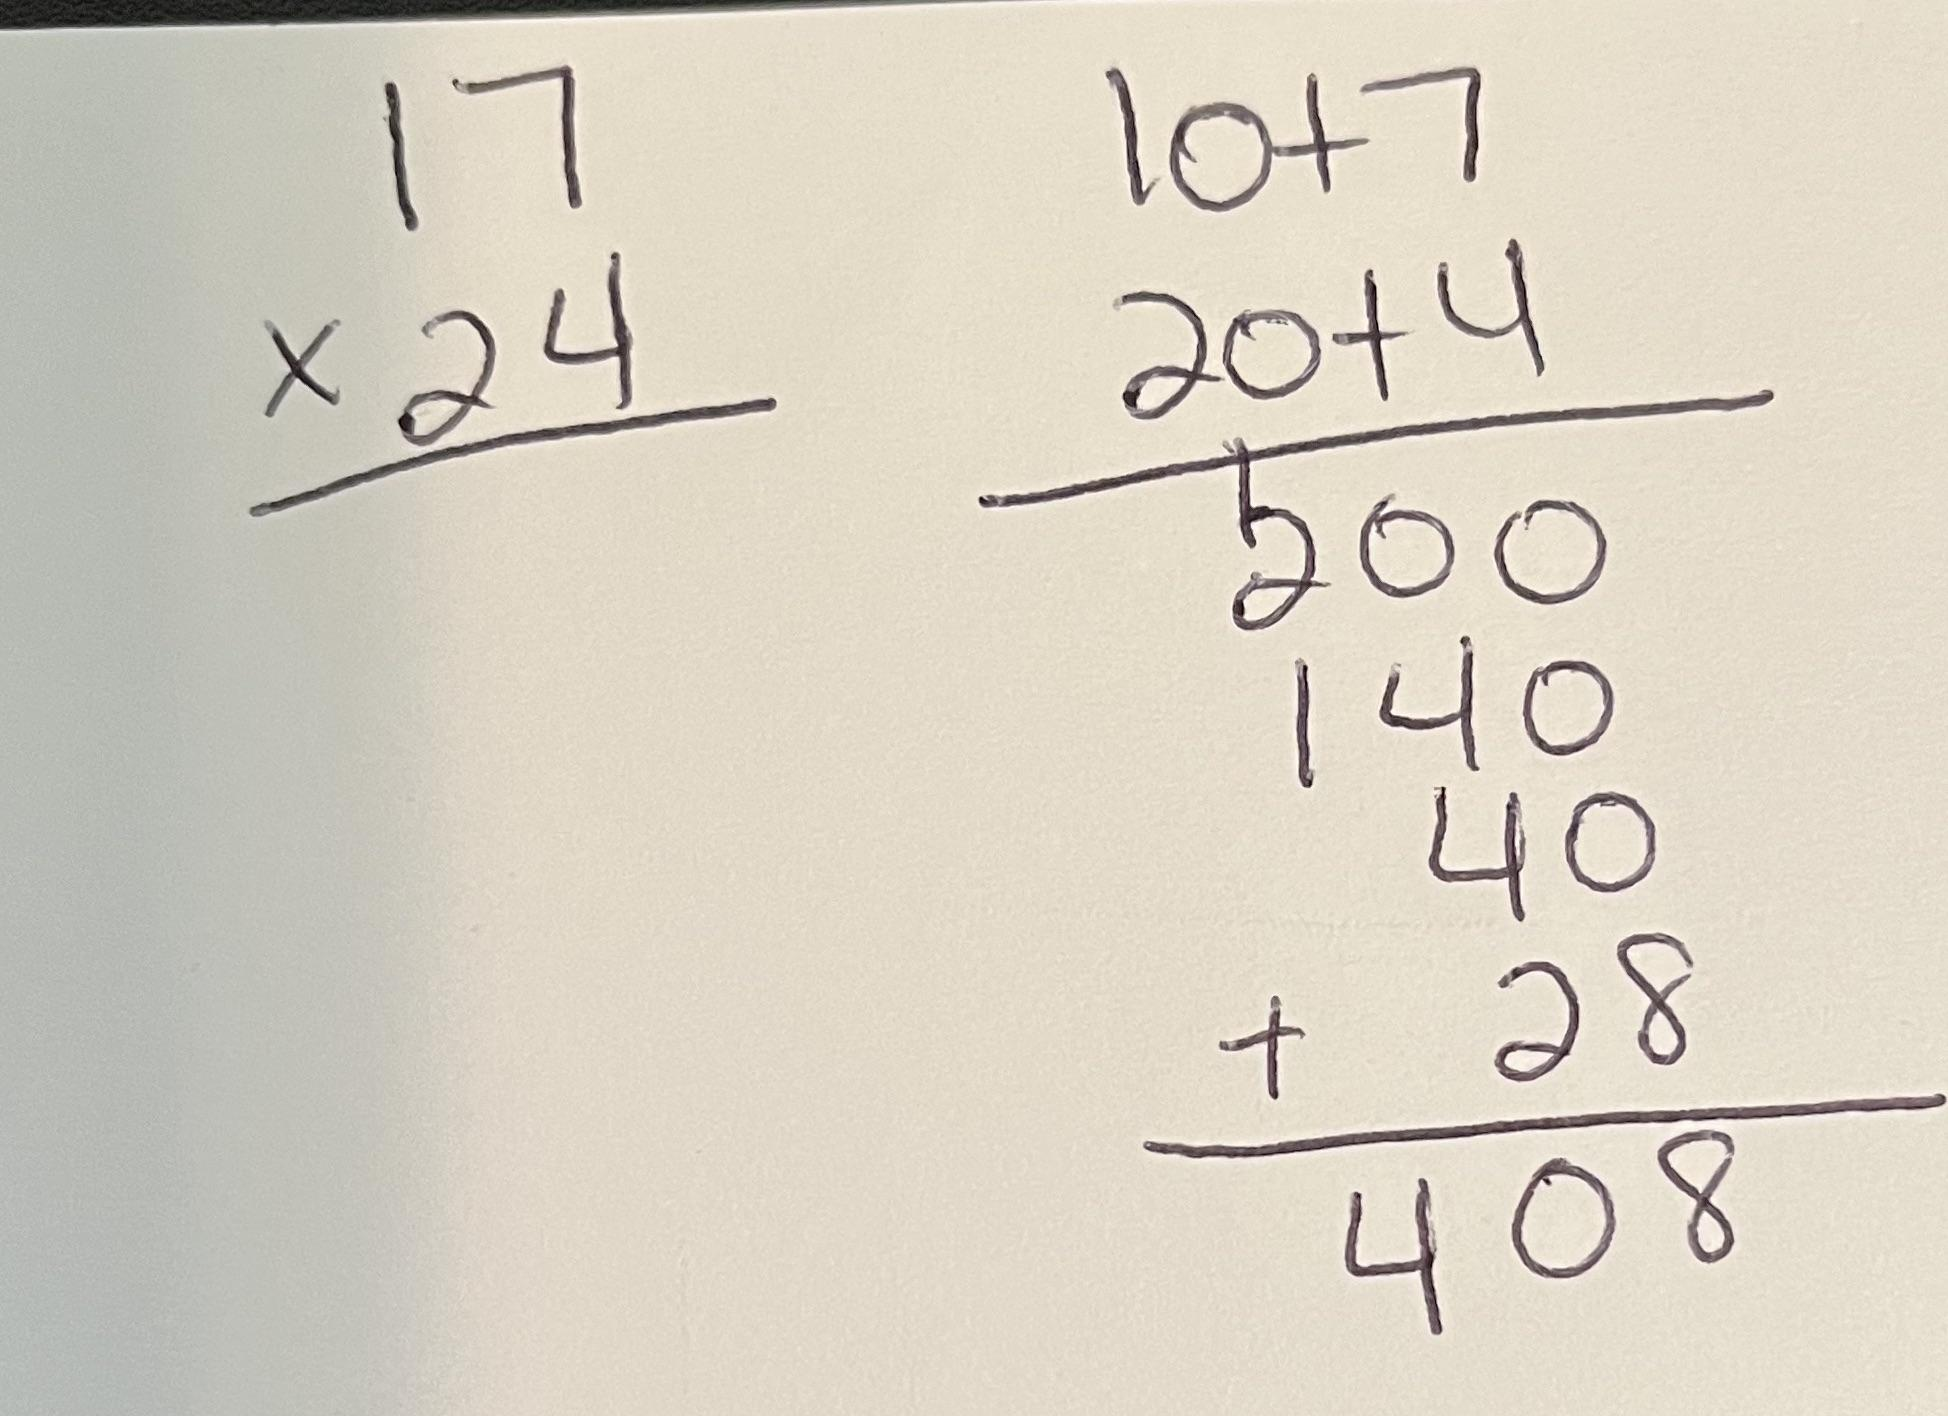 17
x 24
10+7
20+4
1
200
140
40
+ 28
408